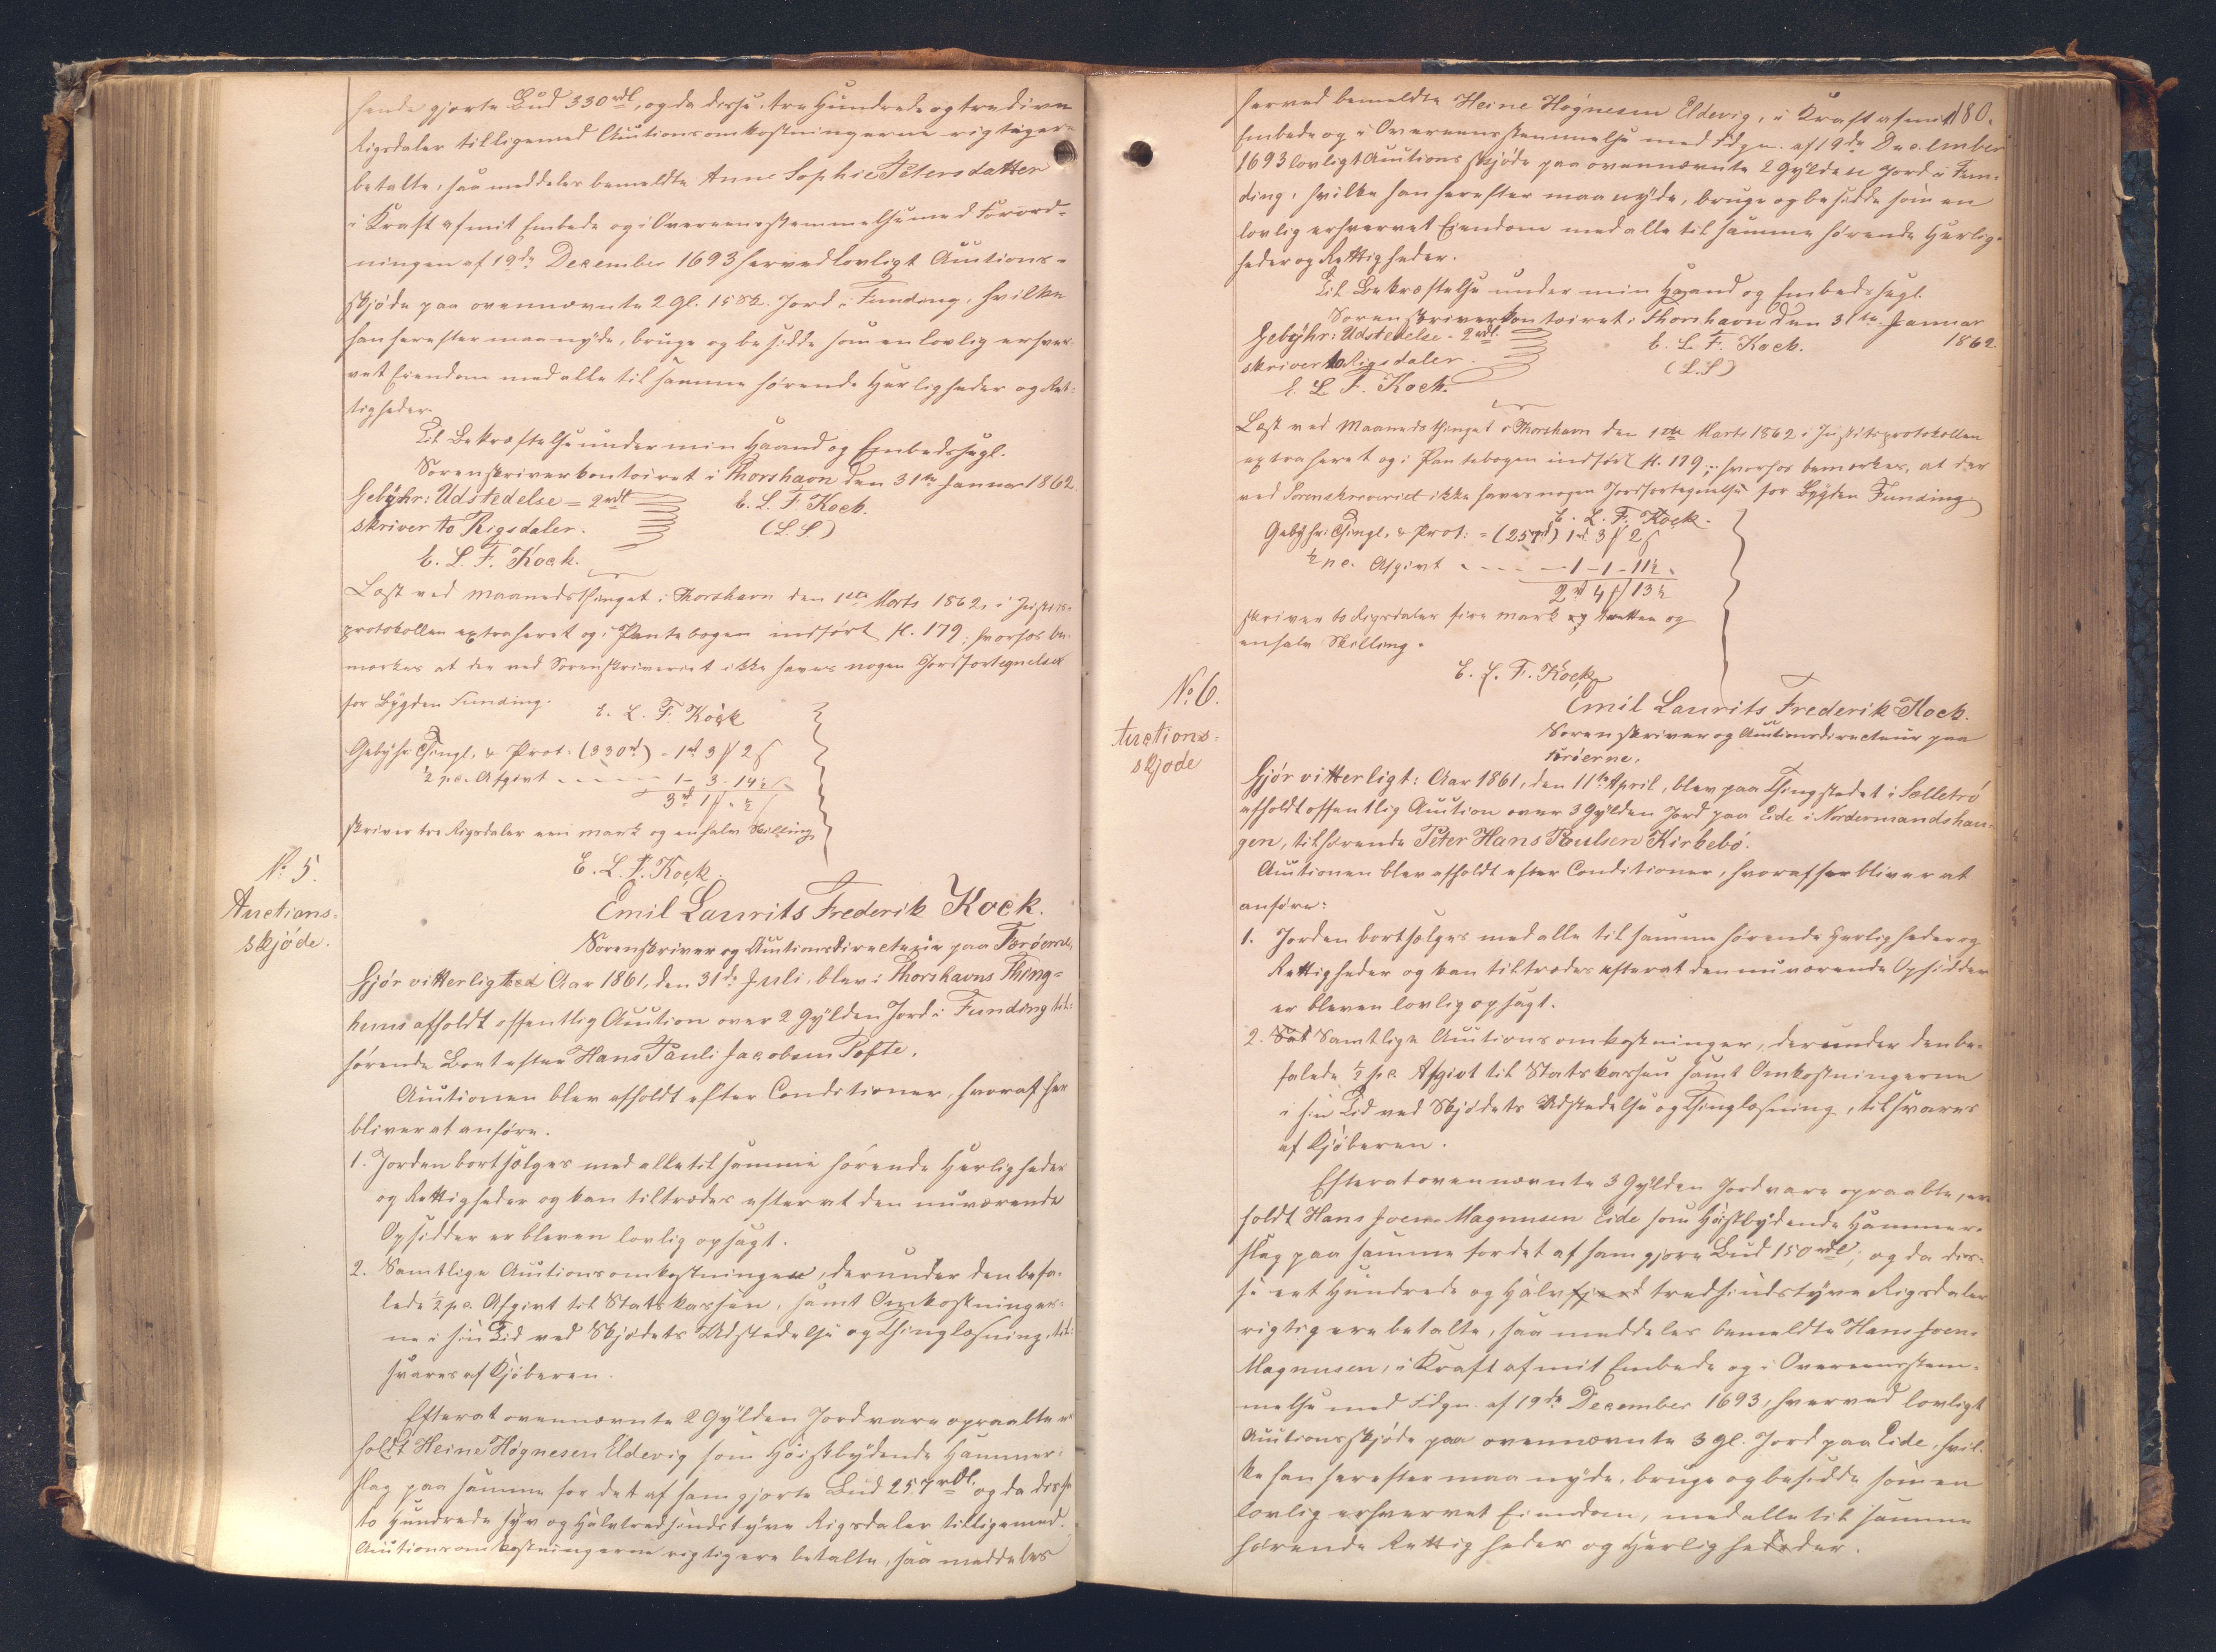 hende gjorte Bud 330 rdl, og da disse tre Hundrede og tredive
Rigsdaler tilligemed Auctionsomkostningerne rigtig ere
betalte, saa meddeles bemeldte Anne Sophie Petersdatter
i Kraft af mit Embede og i Overeensstemmelse med Forord-
ningen af 19de December 1693 herved lovligt Auctions-
skjöde paa ovennævnte 2 Gl. 15 Sk. Jord i Funding, hvilke
han herefter maa nyde, bruge og besidde som en lovlig erhver-
vet Eiendom med alle til samme hørende Herligheder og Ret-
tigheder.
Til Bekræftelse under min Haand og Embedssegl.
Sorenskriverkontoiret i Thorshavn den 31te Januar 1862
Gebyhr: Udstedelse = 2 rdl
E. L. F. Kock.
skriver to Rigsdaler.
(L.S)
E. L. F. Kock.
Læst ved Maanedsthinget i Thorshavn den 1ste Marts 1862, i Justits-
protokollen extraheret og i Pantebogen indført f. 179; hvorhos be-
mærkes at der ved Sorenskriveriet ikke haves nogen Jordfortegnelse
for Bygden Funding.
E. L. F. Kock
Gebyhr Thingl. & Prot. (330 rd) - 1 rd 3 ß 2 ß
½ pc. Afgivt - - - - 1 - 3 - 14½
3 rd 1 ß " ½
skriver tre Rigsdaler een Mark og en halv Skilling
E. L. F. Kock.
No 5.
Auctions-
skjöde.
Emil Laurits Frederik Kock.
Sorenskriver og Auctionsdirecteur paa Færöerne,
Gjör vitterligt: Aar 1861, den 31de Juli, blev i Thorshavns Thing-
huus afholdt offentlig Auction over 2 Gylden Jord i Funding til-
hørende Boet efter Hans Pauli Jacobsen Tofte.
Auctionen blev afholdt efter Conditioner, hvoraf her
bliver at anføre.
1. Jorden bortsælges med alle til samme hørende Herligheder
og Rettigheder og kan tiltrædes efter at den nuværende
Opsidder er bleven lovlig opsagt.
2. Samtlige Auctionsomkostninger, derunder den befa-
lede ½ pc. Afgivt til Statskassen, samt Omkostninger-
ne i sin Tid ved Skjödets Udstedelse og Thinglæsning, til-
svares af Kjöberen.
Efterat ovennævnte 2 Gylden Jord vare opraabte er-
holdt Heine Høgnesen Eldevig som Höistbydende Hammer-
slag paa samme for det af ham gjorte Bud 257 rdl. og da disse
to Hundrede syv og halvtredsindstyve Rigsdaler tilligemed
Auctionsomkostningerne rigtig ere betalte, saa meddeles
180.
herved bemeldte Heine Høgnesen Eldevig, i Kraft af mit
Embede og i Overeensstemmelse med Fdgn. af 19de December
1693 lovligt Auctionsskjöde paa ovennævnte 2 Gylden Jord i Fun-
ding, hvilke han herefter maa nyde, bruge og besidde som en
lovlig erhvervet Eiendom med alle til samme hørende Herlig-
heder og Rettigheder.
Til Bekræftelse under min Haand og Embedssegl.
Sorenskriverkontoiret i Thorshavn den 31te Januar
1862
Gebyhr: Udstedelse - 2 rdl.
E. L. F. Kock.
skriver to Rigsdaler.
(L.S)
E. L. F. Kock.
Læst ved Maanedsthinget i Thorshavn den 1ste Marts 1862 i Justitsprotokollen
extraheret og i Pantebogen indført f. 179; hvorhos bemærkes, at der
ved Sorenskriveriet ikke haves nogen Jordfortegnelse for Bygden Funding
E. L. F. Kock.
Gebyhr: Thingl. & Prot: = (257 rd) 1 rd 3 ß 2 ß
½ pc. Afgivt - - - - 1 - 1 - 11½
2 rd 4 ß 13½
skriver to Rigsdaler fire Mark og tretten og
en halv Skilling.
E. L. F. Kock
No 6.
Auctions-
skjöde
Emil Laurits Frederik Kock.
Sorenskriver og Auctionsdirecteur paa
Færöerne.
Gjör vitterligt: Aar 1861, den 11te April, blev paa Thingstedet i Selletrø
afholdt offentlig Auction over 3 Gylden Jord paa Eide i Nordermandshau-
gen, tilhørende Peter Hans Poulsen Kirkebö.
Auctionen blev afholdt efter Conditioner, hvoraf her bliver at
anføre:
1. Jorden bortsælges med alle til samme hørende Herligheder og
Rettigheder og kan tiltrædes efterat den nuværende Opsidder
er bleven lovlig opsagt.
2. Sat Samtlige Auctionsomkostninger, derunder den be-
falede ½ pc. Afgivt til Statskassen samt Omkostningerne
i sin Tid ved Skjödets Udstedelse og Thinglæsning, tilsvares
af Kjöberen.
Efterat ovennævnte 3 Gylden Jord vare opraabte, er-
holdt Hans Joen Magnusen Eide som Höistbydende Hammer-
slag paa samme for det af ham gjorte Bud 150 rdl, og da dis-
se eet Hundrede og halvtredsindstyve Rigsdaler
rigtig ere betalte, saa meddeles bemeldte Hans Joen
Magnusen, i Kraft af mit Embede og i Overeensstem-
melse med Fdgn. af 19de December 1693, herved lovligt
Auctionsskjöde paa ovennævnte 3 Gl. Jord paa Eide, hvil-
ke han herefter maa nyde, bruge og besidde som en
lovlig erhvervet Eiendom, med alle til samme
hørende Rettigheder og Herligheder.